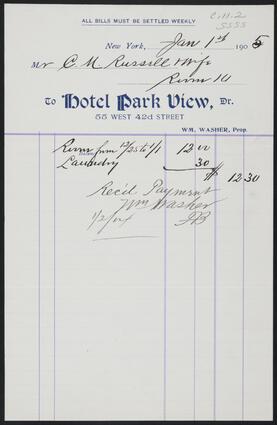 ALL BILLS MUST BE SETTLED WEEKLY
C.11.2
5555
New York, Jan 1st 1905
Mr C. M. Russell & Wife
Room 14
To Hotel Park View, Dr.
55 WEST 42d STREET
WM. WASHER, Prop.
Room from 12/25 to 1/1 12 00
Laundry 30
$ 12.30
Recd Payment
Wm Washer
1/2/04